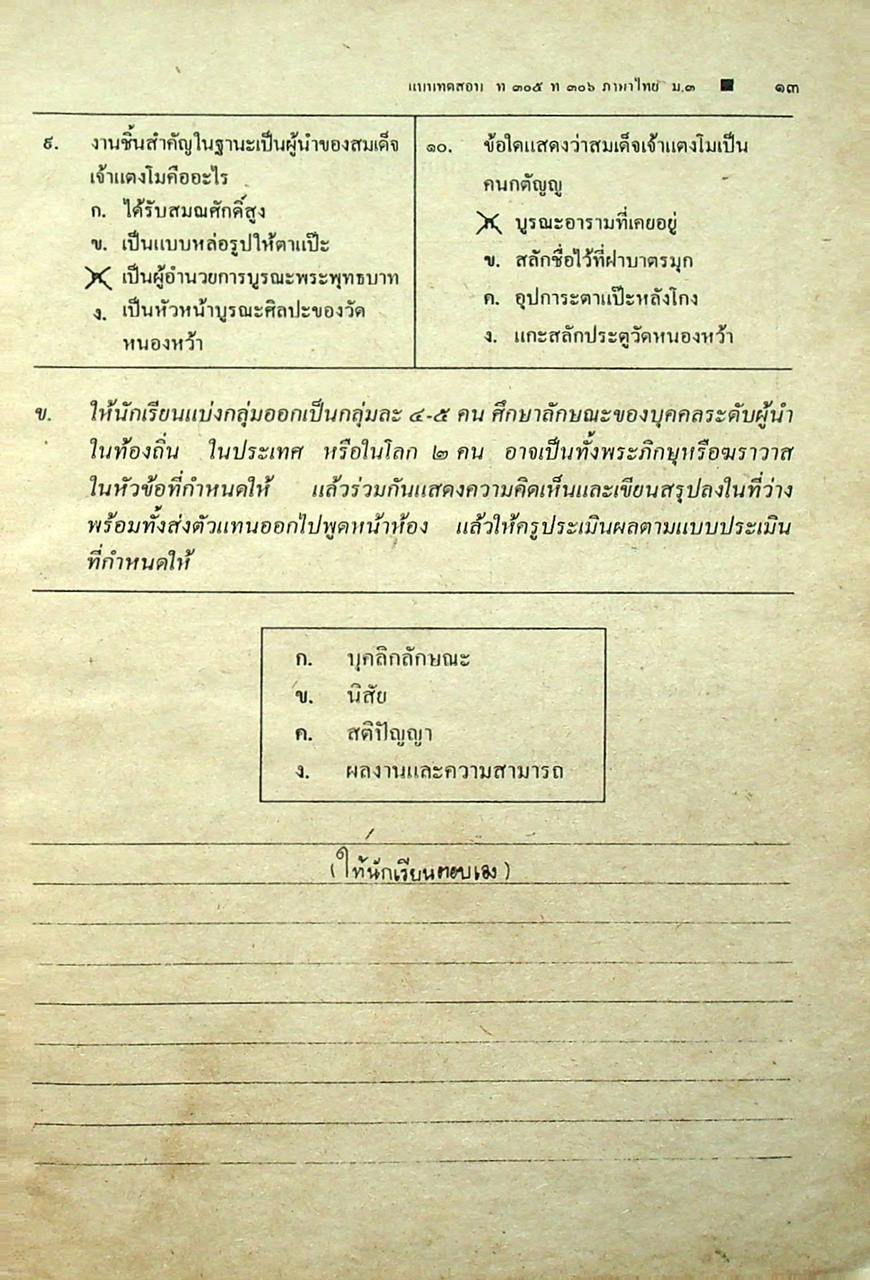 แบบทดสอบ ท ๓๐๕ ท ๓๐๖ ภาษาไทย ม.๓ ■ ๑๓
๙. งานชิ้นสำคัญในฐานะเป็นผู้นำของสมเด็จ
เจ้าแตงโมคืออะไร
ก. ได้รับสมณศักดิ์สูง
ข. เป็นแบบหล่อรูปให้ตาแป๊ะ
ค. เป็นผู้อำนวยการบูรณะพระพุทธบาท
ง. เป็นหัวหน้าบูรณะศิลปะของวัด
หนองหว้า
๑๐. ข้อใดแสดงว่าสมเด็จเจ้าแตงโมเป็น
คนกตัญญู
ก. บูรณะอารามที่เคยอยู่
ข. สลักชื่อไว้ที่ฝาบาตรมุก
ค. อุปการะตาแป๊ะหลังโกง
ง. แกะสลักประตูวัดหนองหว้า
ข. ให้นักเรียนแบ่งกลุ่มออกเป็นกลุ่มละ ๔-๕ คน ศึกษาลักษณะของบุคคลระดับผู้นำ
ในท้องถิ่น ในประเทศ หรือในโลก ๒ คน อาจเป็นทั้งพระภิกษุหรือฆราวาส
ในหัวข้อที่กำหนดให้ แล้วร่วมกันแสดงความคิดเห็นและเขียนสรุปลงในที่ว่าง
พร้อมทั้งส่งตัวแทนออกไปพูดหน้าห้อง แล้วให้ครูประเมินผลตามแบบประเมิน
ที่กำหนดให้
ก. บุคลิกลักษณะ
ข. นิสัย
ค. สติปัญญา
ง. ผลงานและความสามารถ
(ให้นักเรียนตอบเอง)